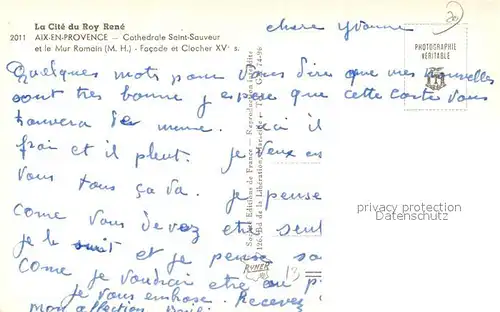 La Cité du Roy René
2011 AIX-EN-PROVENCE — Cathedrale Saint-Sauveur
et le Mur Romain (M. H.) - Façade et Clocher XVᵉ s.
chere Yvonne
20
PHOTOGRAPHIE
VÉRITABLE
Quelques mots pour vous dire que mes nouvelles
sont tres bonne j espere que cette carte vous
trouvera de meme. ici il
frai et il pleut. je veux
vous tous ça va. je pense
come vous devez etre seul
je le suit et je pense
come je voudrai etre
je vous embrasse. Recevez
mon affection
Société Editions de France — Reproduction interdite
126, Bd de la Libération, Marseille - 24-96
RYNER
13
privacy protection
Datenschutz